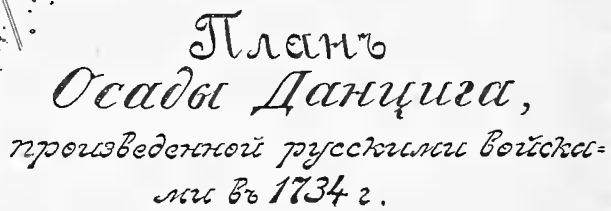 Планъ
Осады Данцига,
произведенной русскими войска=
ми въ 1734 г.